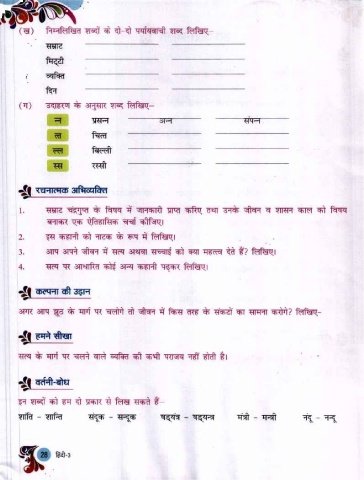 (ख) निम्नलिखित शब्दों के दो-दो पर्यायवाची शब्द लिखिए–
सम्राट
मिट्टी
व्यक्ति
दिन
(ग) उदाहरण के अनुसार शब्द लिखिए–
न्न प्रसन्न अन्न संपन्न
त्त चित्त
ल्ल बिल्ली
स्स रस्सी
रचनात्मक अभिव्यक्ति
1. सम्राट चंद्रगुप्त के विषय में जानकारी प्राप्त करिए तथा उनके जीवन व शासन काल को विषय
बनाकर एक ऐतिहासिक चर्चा कीजिए।
2. इस कहानी को नाटक के रूप में लिखिए।
3. आप अपने जीवन में सत्य अथवा सच्चाई को क्या महत्त्व देते हैं? लिखिए।
4. सत्य पर आधारित कोई अन्य कहानी पढ़कर लिखिए।
कल्पना की उड़ान
अगर आप झूठ के मार्ग पर चलोगे तो जीवन में किस तरह के संकटों का सामना करोगे? लिखिए–
हमने सीखा
सत्य के मार्ग पर चलने वाले व्यक्ति की कभी पराजय नहीं होती है।
वर्तनी-बोध
इन शब्दों को हम दो प्रकार से लिख सकते हैं–
शांति – शान्ति संदूक – सन्दूक षड्यंत्र – षड्यन्त्र मंत्री – मन्त्री नंदू – नन्दू
28 हिंदी-3